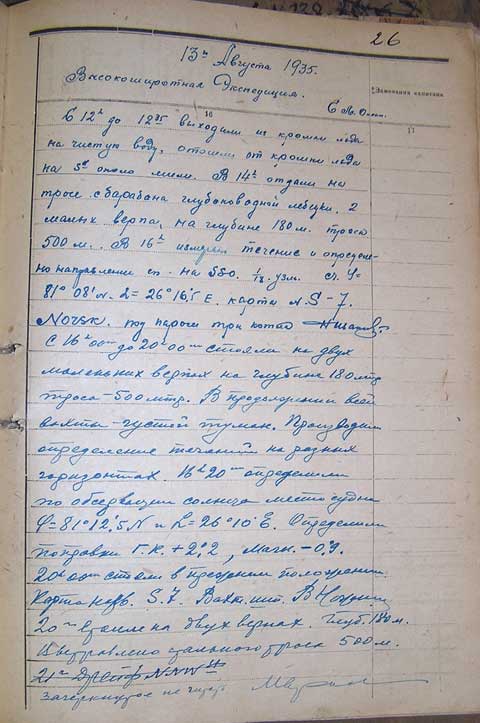 26
13го Августа 1935.
Высокоширотная Экспедиция.
Замечания капитана
16
17
С 12ч до 12 35 выходили из кромки льда
на чистую воду, отошли от кромки льда
на около мили. В 14ч отдали на
тросе с барабана глубоководной лебедки 2
малых верпа, на глубине 180 м. троса
500 м. В 16ч измерили течение и определе-
но направление на SSO. узм. сч. φ=
81° 08' N. L= 26° 16',5 E. карта N. S-7.
Norsk. под парами три котла
С 16ч 00м до 20ч 00м стояли на двух
маленьких верпах на глубине 180 мтр
троса - 500 мтр. В продолжении всей
вахты - густой туман. Производили
определение течений на разных
горизонтах. 16ч 20м определили
по обсервации солнца место судна
φ=81° 12',5 N и L=26° 10' E. Определили
поправки Г.К. + 2°,2, магн. - 0°,9.
20ч 00м стояли в прежнем положении.
Карта норв. S.7. Вахт. шт.
20ч Стоим на двух верпах. Глуб. 180 м.
Вытравлено стального троса 500 м.
21ч Дрейф NNW
зачеркнутое не читать